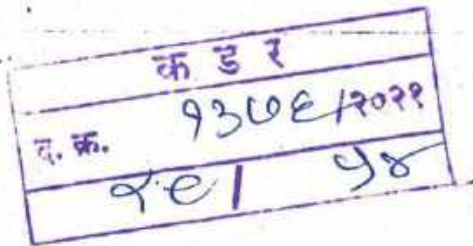 क ड र
द. क्र. १३७६/२०२१
२९ | ५४